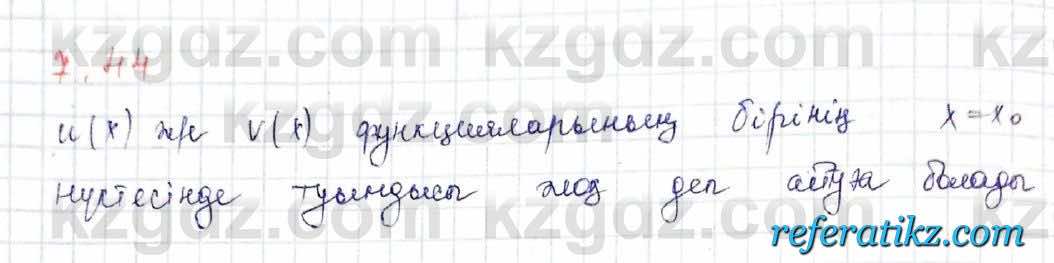 kzgdz.com kzgdz.com kz
7.44
u(x) жне v(x) функцияларының бірінің x=x₀
kzgdz.com kzgdz.com kz
нүктесінде туындысы жоқ деп айтуға болады
kzgdz.com kzgdz.com
referatikz.com